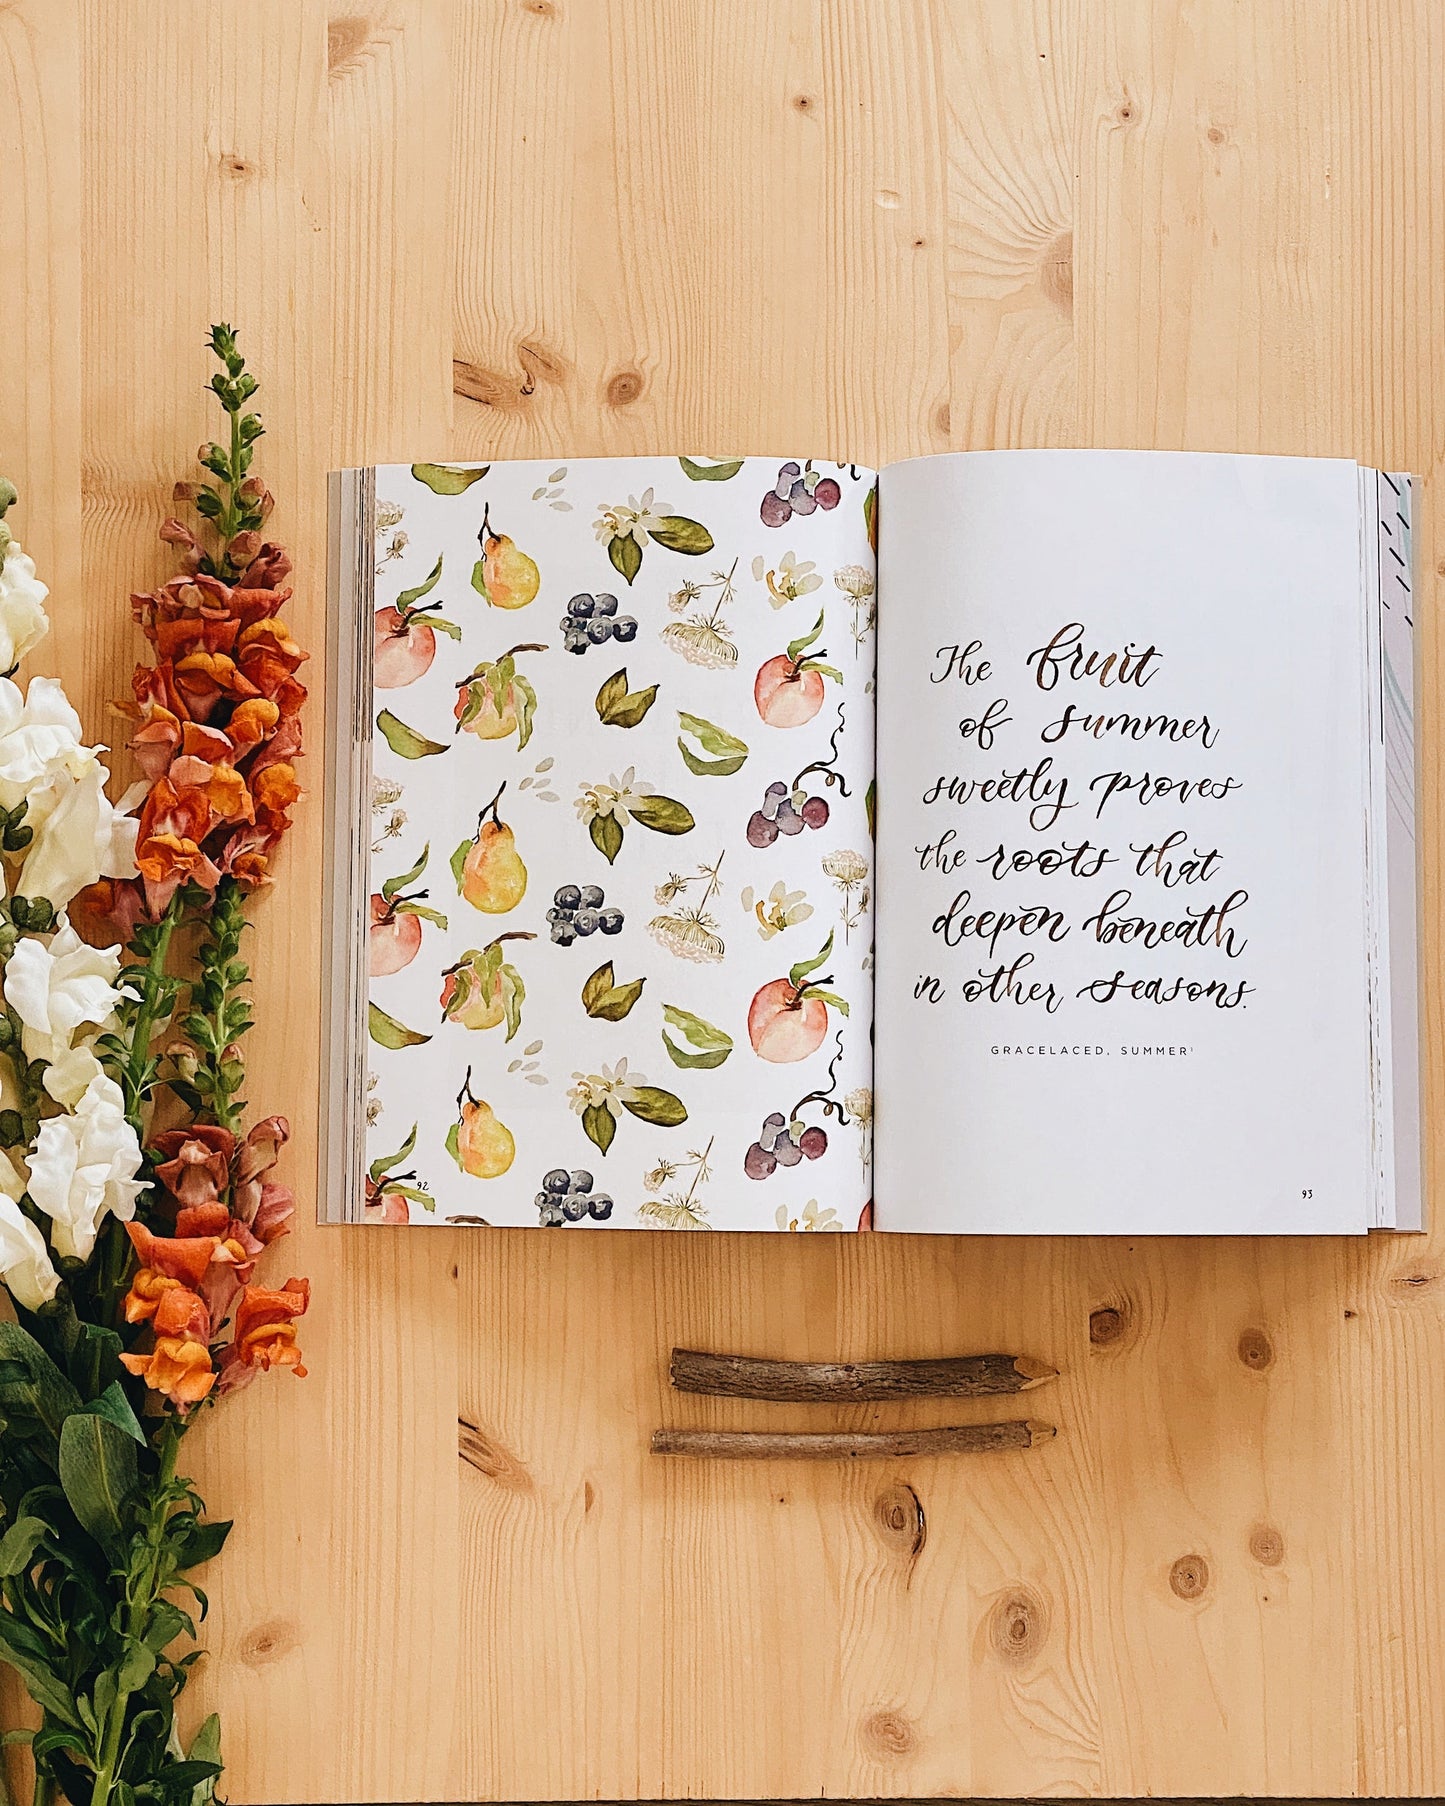 92
The fruit
of summer
sweetly proves
the roots that
deepen beneath
in other seasons.
GRACELACED, SUMMER¹
93